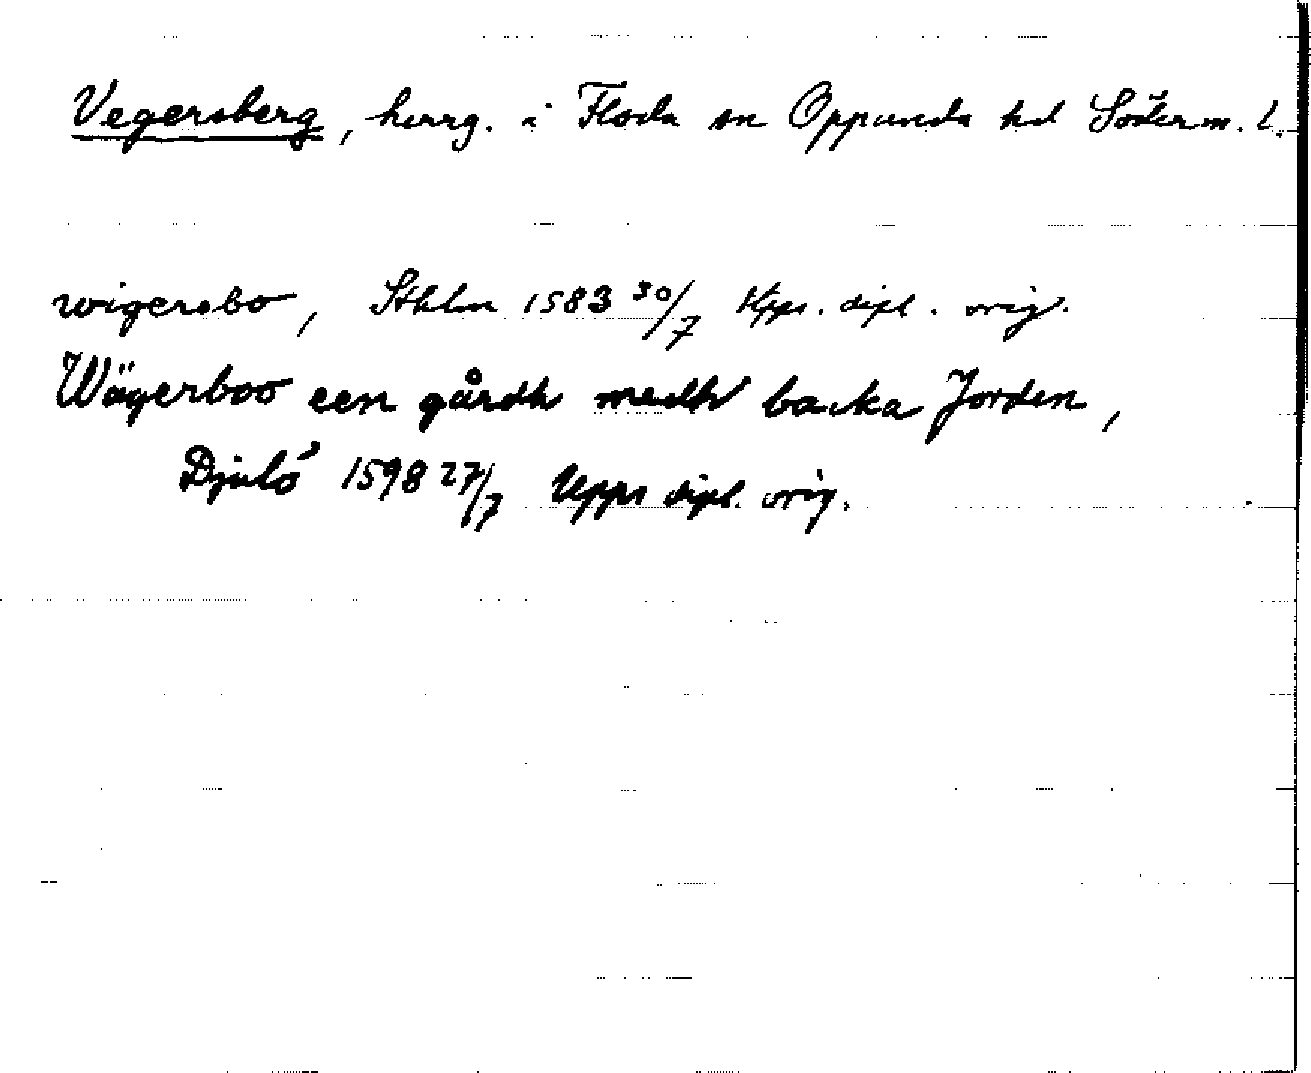 Vegersberg, herrg. i Floda sn Oppunda hd Söderm. l.
wigersbo, Sthlm 1583 30/7 Upps. dipl. orig.
Wägerboo een gårdh medh backa Jorden,
Djulö 1598 27/7 Upps dipl. orig.